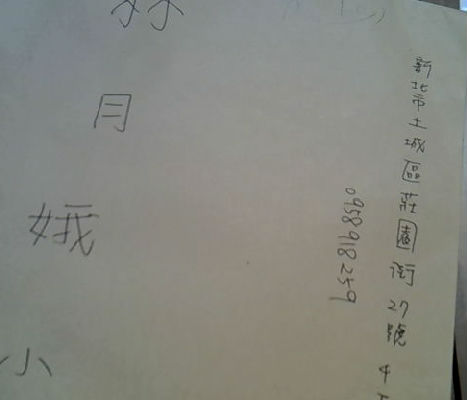 新北市土城區莊園街27號 4
0958918259
月娥小